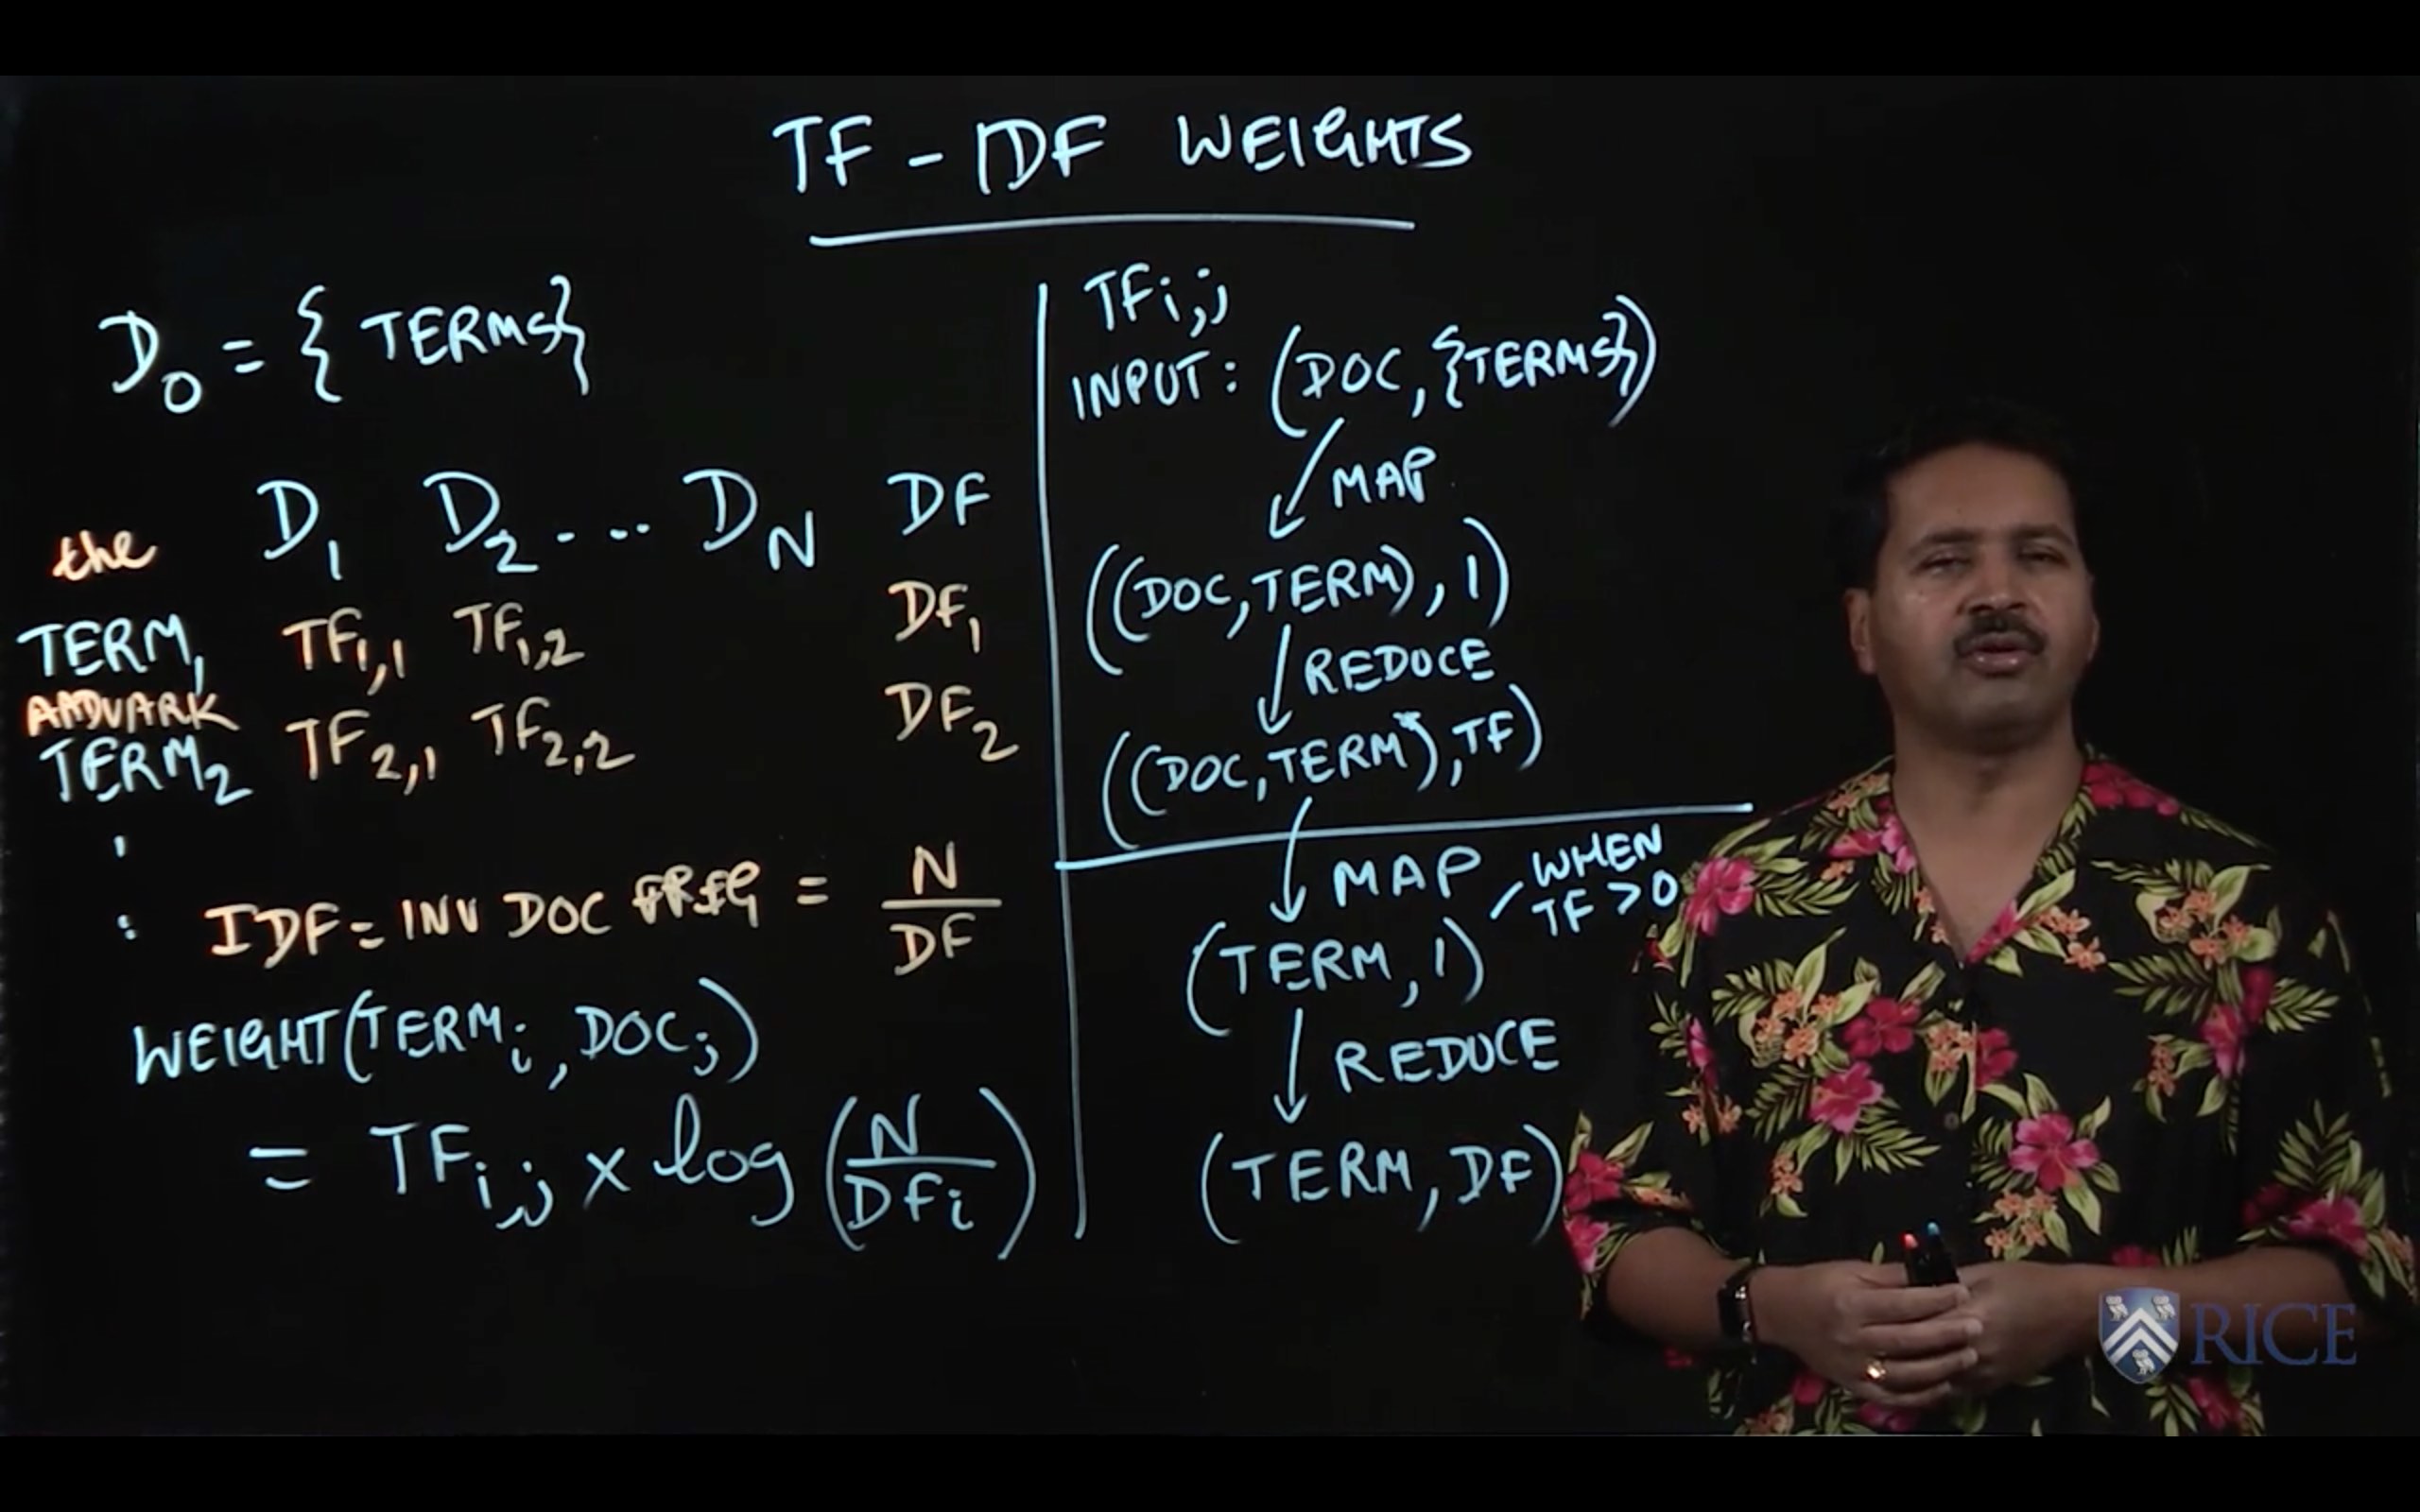 TF - IDF WEIGHTS
D0 = { TERMS}
D1 D2 .... DN DF
the
TERM1 TF1,1 TF1,2 DF1
ARDVARK
TERM2 TF2,1 TF2,2 DF2
IDF = INV DOC FREQ = N/DF
WEIGHT(TERMi, DOCj)
= TFi,j x log (N/DFi)
TFi,j
INPUT: (DOC, {TERMS})
MAP
((DOC, TERM), 1)
REDUCE
((DOC, TERM), TF)
MAP
WHEN
TF > 0
(TERM, 1)
REDUCE
(TERM, DF)
RICE